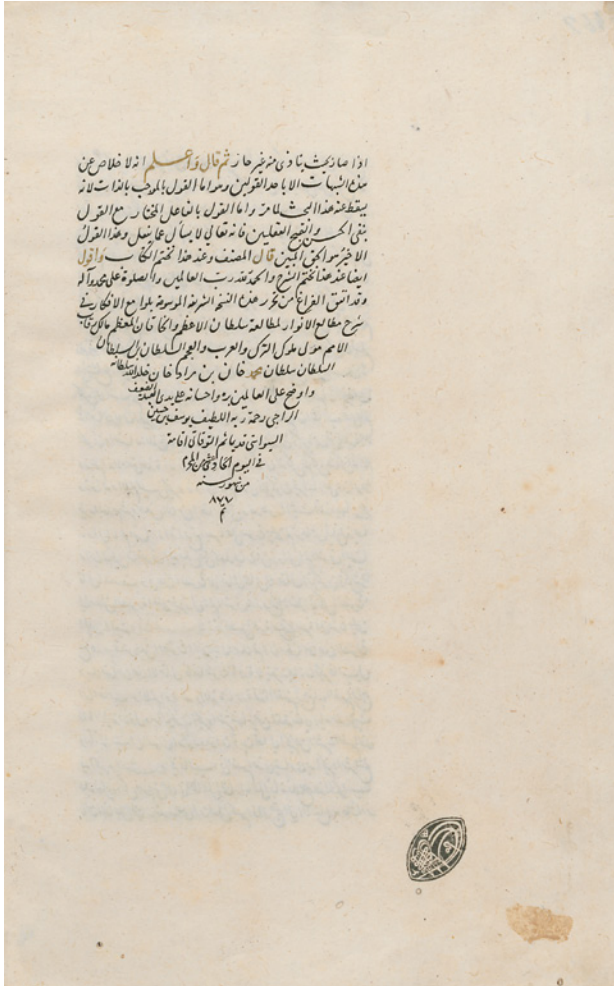 اذا صار بحيث يتاذى منه غير جاز ثم قال واعلم انه لا خلاص عن
هذه الشبهات الا باحد القولين وهو اما القول بالموجب بالذات لانه
يسقط عنه هذا البحث لما مر واما القول بالفاعل المختار مع القول
بنفى الحسن والقبح العقليين فانه تعالى لا يسأل عما يفعل وهذا القول
الاخير هو الحق المبين قال المصنف وعند هذا نختم الكتاب واقول
ايضا عند هذا نختم الشرح والحمد لله رب العالمين والصلوة على محمد وآله
وقد اتفق الفراغ من تحرير هذه النسخة الشريفة الموسومة بلوامع الافكار فى
شرح مطالع الانوار لمطالعة سلطان الاعظم والخاقان المعظم مالك رقاب
الامم مولى ملوك الترك والعرب والعجم السلطان بن السلطان
السلطان سلطان محمد خان بن مراد خان خلد الله سلطانه
واوضح على العالمين بره واحسانه على يدى العبد الضعيف
الراجى رحمة ربه اللطيف يوسف بن حسين
السيواسى ثم التوقاتى اقامة
فى اليوم الحادى من المحرم
من شهور سنه
٨٧٧
تم